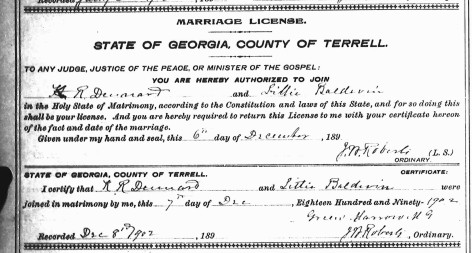 MARRIAGE LICENSE.
STATE OF GEORGIA, COUNTY OF TERRELL.
TO ANY JUDGE, JUSTICE OF THE PEACE, OR MINISTER OF THE GOSPEL:
YOU ARE HEREBY AUTHORIZED TO JOIN
K R Dennard and Littie Baldwin
in the Holy State of Matrimony, according to the Constitution and laws of this State, and for so doing this
shall be your license. And you are hereby required to return this License to me with your certificate hereon
of the fact and date of the marriage.
Given under my hand and seal, this 6th day of December, 189
J.W. Roberts (L. S.)
ORDINARY.
STATE OF GEORGIA, COUNTY OF TERRELL. CERTIFICATE:
I certify that K R Dennard and Littie Baldwin were
joined in matrimony by me, this 7th day of Dec, Eighteen Hundred and Ninety-1902
Green
Recorded Dec 8th 1902, 189 J.W. Roberts,
ORDINARY.